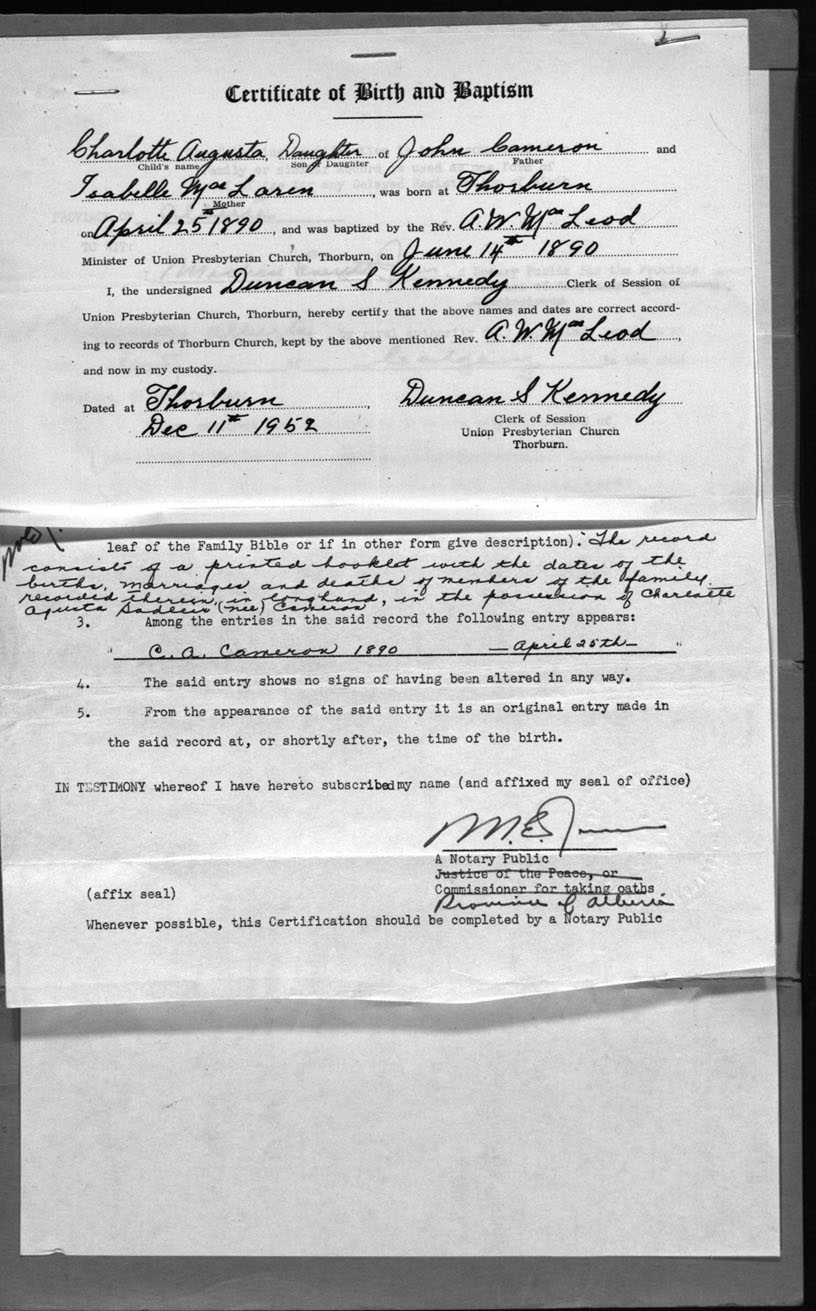 Certificate of Birth and Baptism
Charlotte Augusta, Daughter of John Cameron and
Child's name Son or Daughter Father
Isabelle MacLaren, was born at Thorburn
Mother
on April 25th 1890, and was baptized by the Rev. A. W. MacLeod
Minister of Union Presbyterian Church, Thorburn, on June 14th 1890
I, the undersigned Duncan S Kennedy Clerk of Session of
Union Presbyterian Church, Thorburn, hereby certify that the above names and dates are correct accord-
ing to records of Thorburn Church, kept by the above mentioned Rev. A. W. MacLeod,
and now in my custody.
Dated at Thorburn, Duncan S Kennedy
Dec 11th 1952 Clerk of Session
Union Presbyterian Church
Thorburn.
leaf of the Family Bible or if in other form give description). The record
consists of a printed booklet with the dates of the
births, marriages and deaths of members of the family
recorded therein, in longhand, in the possession of Charlotte
Agusta Sadleir (nee) Cameron
3. Among the entries in the said record the following entry appears:
" C. A. Cameron 1890 — April 25th — "
4. The said entry shows no signs of having been altered in any way.
5. From the appearance of the said entry it is an original entry made in
the said record at, or shortly after, the time of the birth.
IN TESTIMONY whereof I have hereto subscribed my name (and affixed my seal of office)
A Notary Public
Justice of the Peace, or
(affix seal) Commissioner for taking oaths
Province of Alberta
Whenever possible, this Certification should be completed by a Notary Public